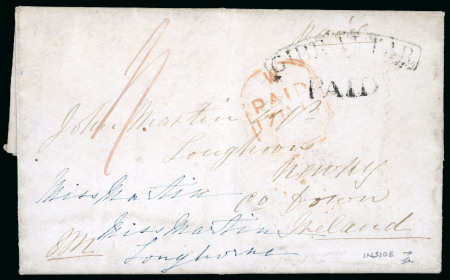 GIBRALTAR
PAID
PAID
John Martin Esqr
Loughorn
Newry
Co Down
Ireland
Miss Martin
Miss Martin
Loughorne
INSIDE